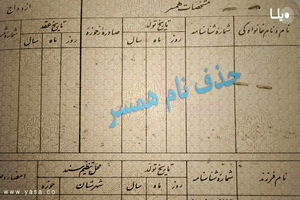 یاسا
مشخصات همسر
ازدواج
نام و نام خانوادگی
شماره شناسنامه
تاریخ تولد
روز ماه سال
صادره از حوزه
تاریخ عقد
روز ماه سال
حذف نام همسر
نام فرزند
شماره شناسنامه
تاریخ تولد
روز ماه سال
محل تنظیم سند
شهرستان حوزه
www.yasa.co